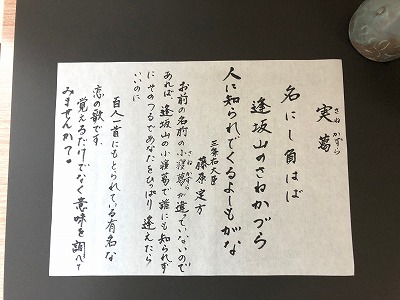 さね かずら
実葛
名にし負はば
逢坂山のさねかづら
人に知られでくるよしもがな
三条右大臣
藤原定方
さね かずら
お前の名前の小寝葛が違っていないので
あれば逢坂山の小寝葛で誰にも知られず
にそのつるであなたをひっぱり逢えたら
いいのに
百人一首にもとられている有名な
恋の歌です。
覚えるだけでなく意味を調べて
みませんか？